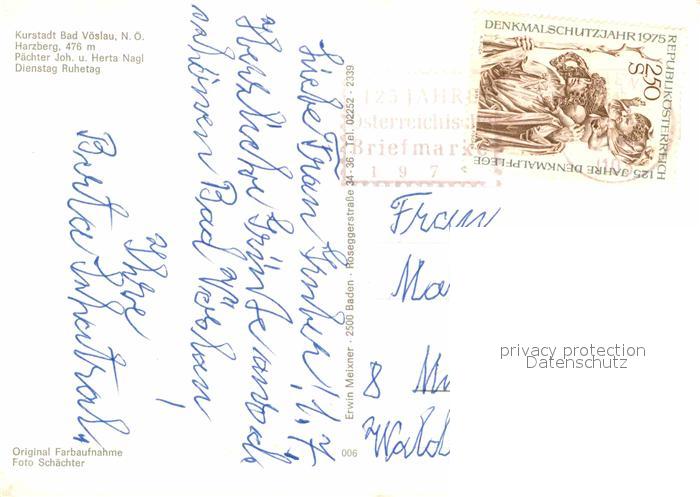 Kurstadt Bad Vöslau, N. Ö.
Harzberg, 476 m
Pächter Joh. u. Herta Nagl
Dienstag Ruhetag
Liebe Frau Huber! 1.7.
Herzliche Grüße aus dem
schönen Bad Vöslau
Ihre
Berta
Erwin Meixner · 2500 Baden · Roseggerstraße 34-36 · Tel. 02252 - 2339
125 JAHRE
Österreichische
Briefmarke
197
DENKMALSCHUTZJAHR 1975
REPUBLIK ÖSTERREICH
S 2.50
125 JAHRE DENKMALPFLEGE
Frau
Ma
8 Mü
privacy protection
Datenschutz
Original Farbaufnahme
Foto Schächter
006